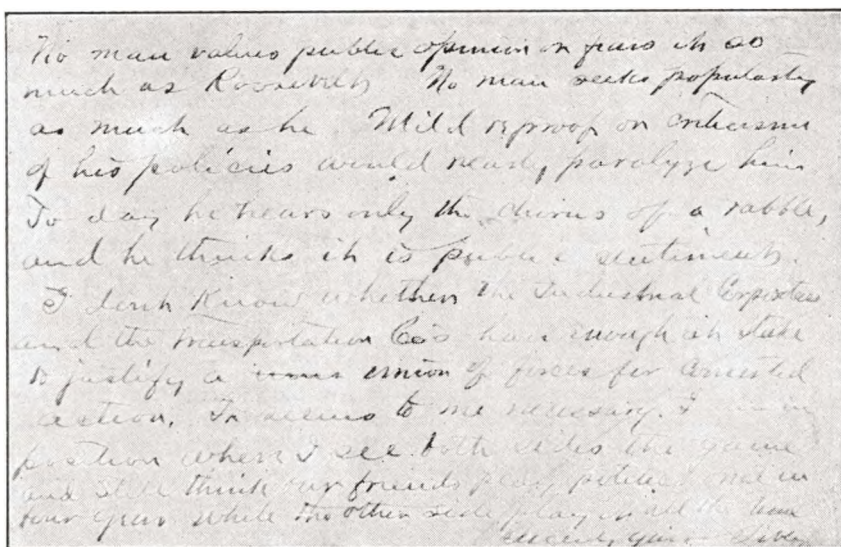 No man values public opinion or fears it so
much as Roosevelt. No man seeks popularity
as much as he. Mild reproof or criticism
of his policies would nearly paralyze him
To day he hears only the chorus of a rabble,
and he thinks it is public sentiment.
I dont Know whether the Industrial Corporations
and the transportation Co's have enough at stake
to justify a union of forces for concerted
action. It seems to me necessary. I am in
position where I see both sides the game
and still think our friends play politics one in
four years while the other side play it all the time
Sincerely yours Sibley